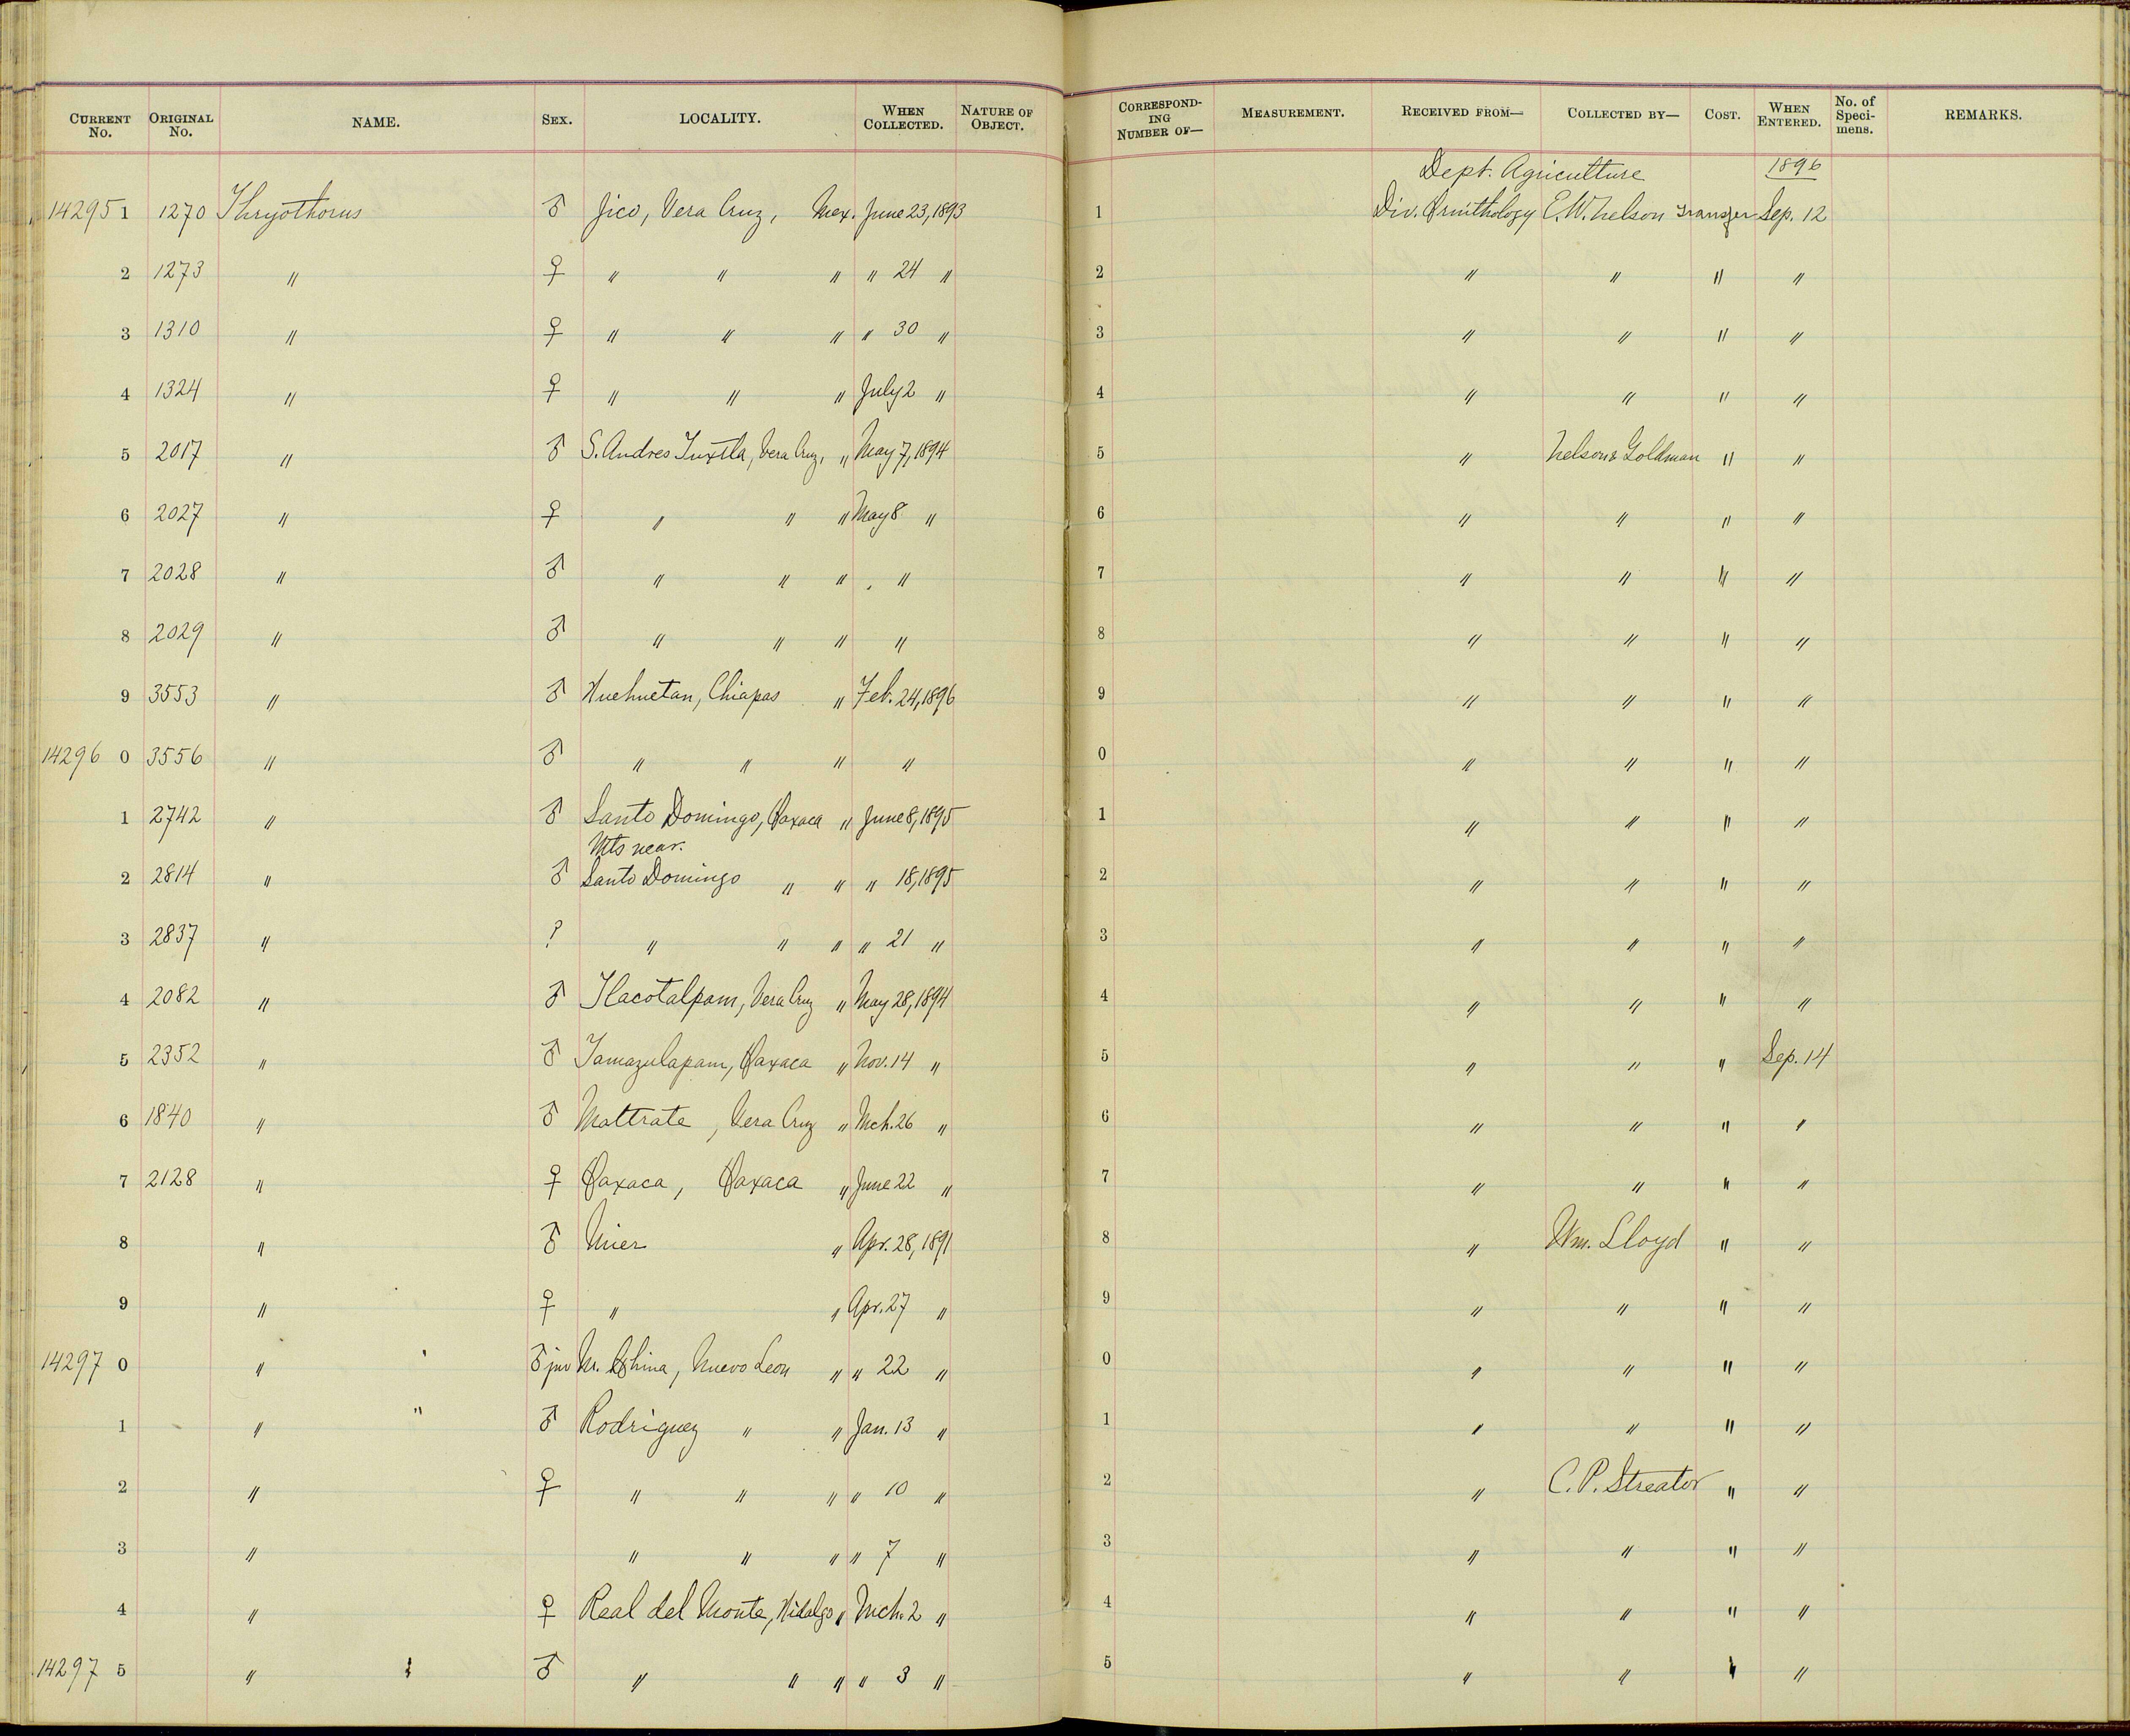 CURRENT No. ORIGINAL No. NAME. SEX. LOCALITY. WHEN COLLECTED. NATURE OF OBJECT. CORRESPONDING NUMBER OF— MEASUREMENT. RECEIVED FROM— COLLECTED BY— COST. WHEN ENTERED. No. of Specimens. REMARKS.
Dept. Agriculture 1896
14295 1 1270 Thryothorus ♂ Jico, Vera Cruz, Mex. June 23, 1893 1 Div. Ornithology E.W. Nelson Transfer Sep. 12
2 1273 " ♀ " " " " 24 " 2 " " " "
3 1310 " ♀ " " " " 30 " 3 " " " "
4 1324 " ♀ " " " July 2 " 4 " " " "
5 2017 " ♂ S. Andres Tuxtla, Vera Cruz, " May 7, 1894 5 " Nelson & Goldman " "
6 2027 " ♀ " " " May 8 " 6 " " " "
7 2028 " ♂ " " " " 7 " " " "
8 2029 " ♂ " " " " 8 " " " "
9 3553 " ♂ Huehuetan, Chiapas " Feb. 24, 1896 9 " " " "
14296 0 3556 " ♂ " " " " 0 " " " "
1 2742 " ♂ Santo Domingo, Oaxaca " June 8, 1895 1 " " " "
Mts near.
2 2814 " ♂ Santo Domingo " " " 18, 1895 2 " " " "
3 2837 " ? " " " " 21 " 3 " " " "
4 2082 " ♂ Tlacotalpam, Vera Cruz " May 28, 1894 4 " " " "
5 2352 " ♂ Tamazulapam, Oaxaca " Nov. 14 " 5 " " " Sep. 14
6 1840 " ♂ Maltrate, Vera Cruz " Mch. 26 " 6 " " " "
7 2128 " ♀ Oaxaca, Oaxaca " June 22 " 7 " " " "
8 " ♂ Mier " Apr. 28, 1891 8 " Wm. Lloyd " "
9 " ♀ " " Apr. 27 " 9 " " " "
14297 0 " ♂ juv Nr. China, Nuevo Leon " " 22 " 0 " " " "
1 " " ♂ Rodriguez " " Jan. 13 " 1 " " " "
2 " ♀ " " " " 10 " 2 " C. P. Streator " "
3 " " " " " 7 " 3 " " " "
4 " ♀ Real del Monte, Hidalgo " Mch. 2 " 4 " " " "
14297 5 " ♂ " " " " 3 " 5 " " " "